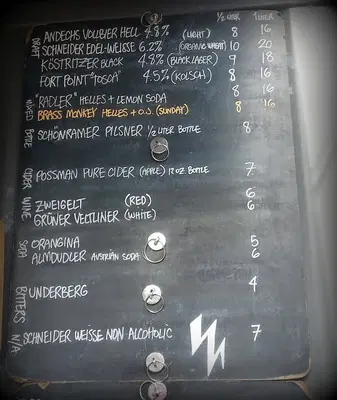 ½ LITER 1 LITER
DRAFT
ANDECHS VOLLBIER HELL 4.8% (LIGHT) 8 16
SCHNEIDER EDEL-WEISSE 6.2% (ORGANIC WHEAT) 10 20
KÖSTRITZER BLACK 4.8% (BLACK LAGER) 9 18
FORT POINT "TOSCA" 4.5% (KOLSCH) 8 16
MIXED
"RADLER" HELLES + LEMON SODA 8 16
BRASS MONKEY HELLES + O.J. (SUNDAY) 8 16
BOTTLE
SCHÖNRAMER PILSNER ½ LITER BOTTLE 8
CIDER
POSSMAN PURE CIDER (APPLE) 12 OZ. BOTTLE 7
WINE
ZWEIGELT (RED) 6
GRÜNER VELTLINER (WHITE) 6
SODA
ORANGINA 5
ALMDUDLER AUSTRIAN SODA 6
BITTERS
UNDERBERG 4
N/A
SCHNEIDER WEISSE NON ALCOHOLIC 7